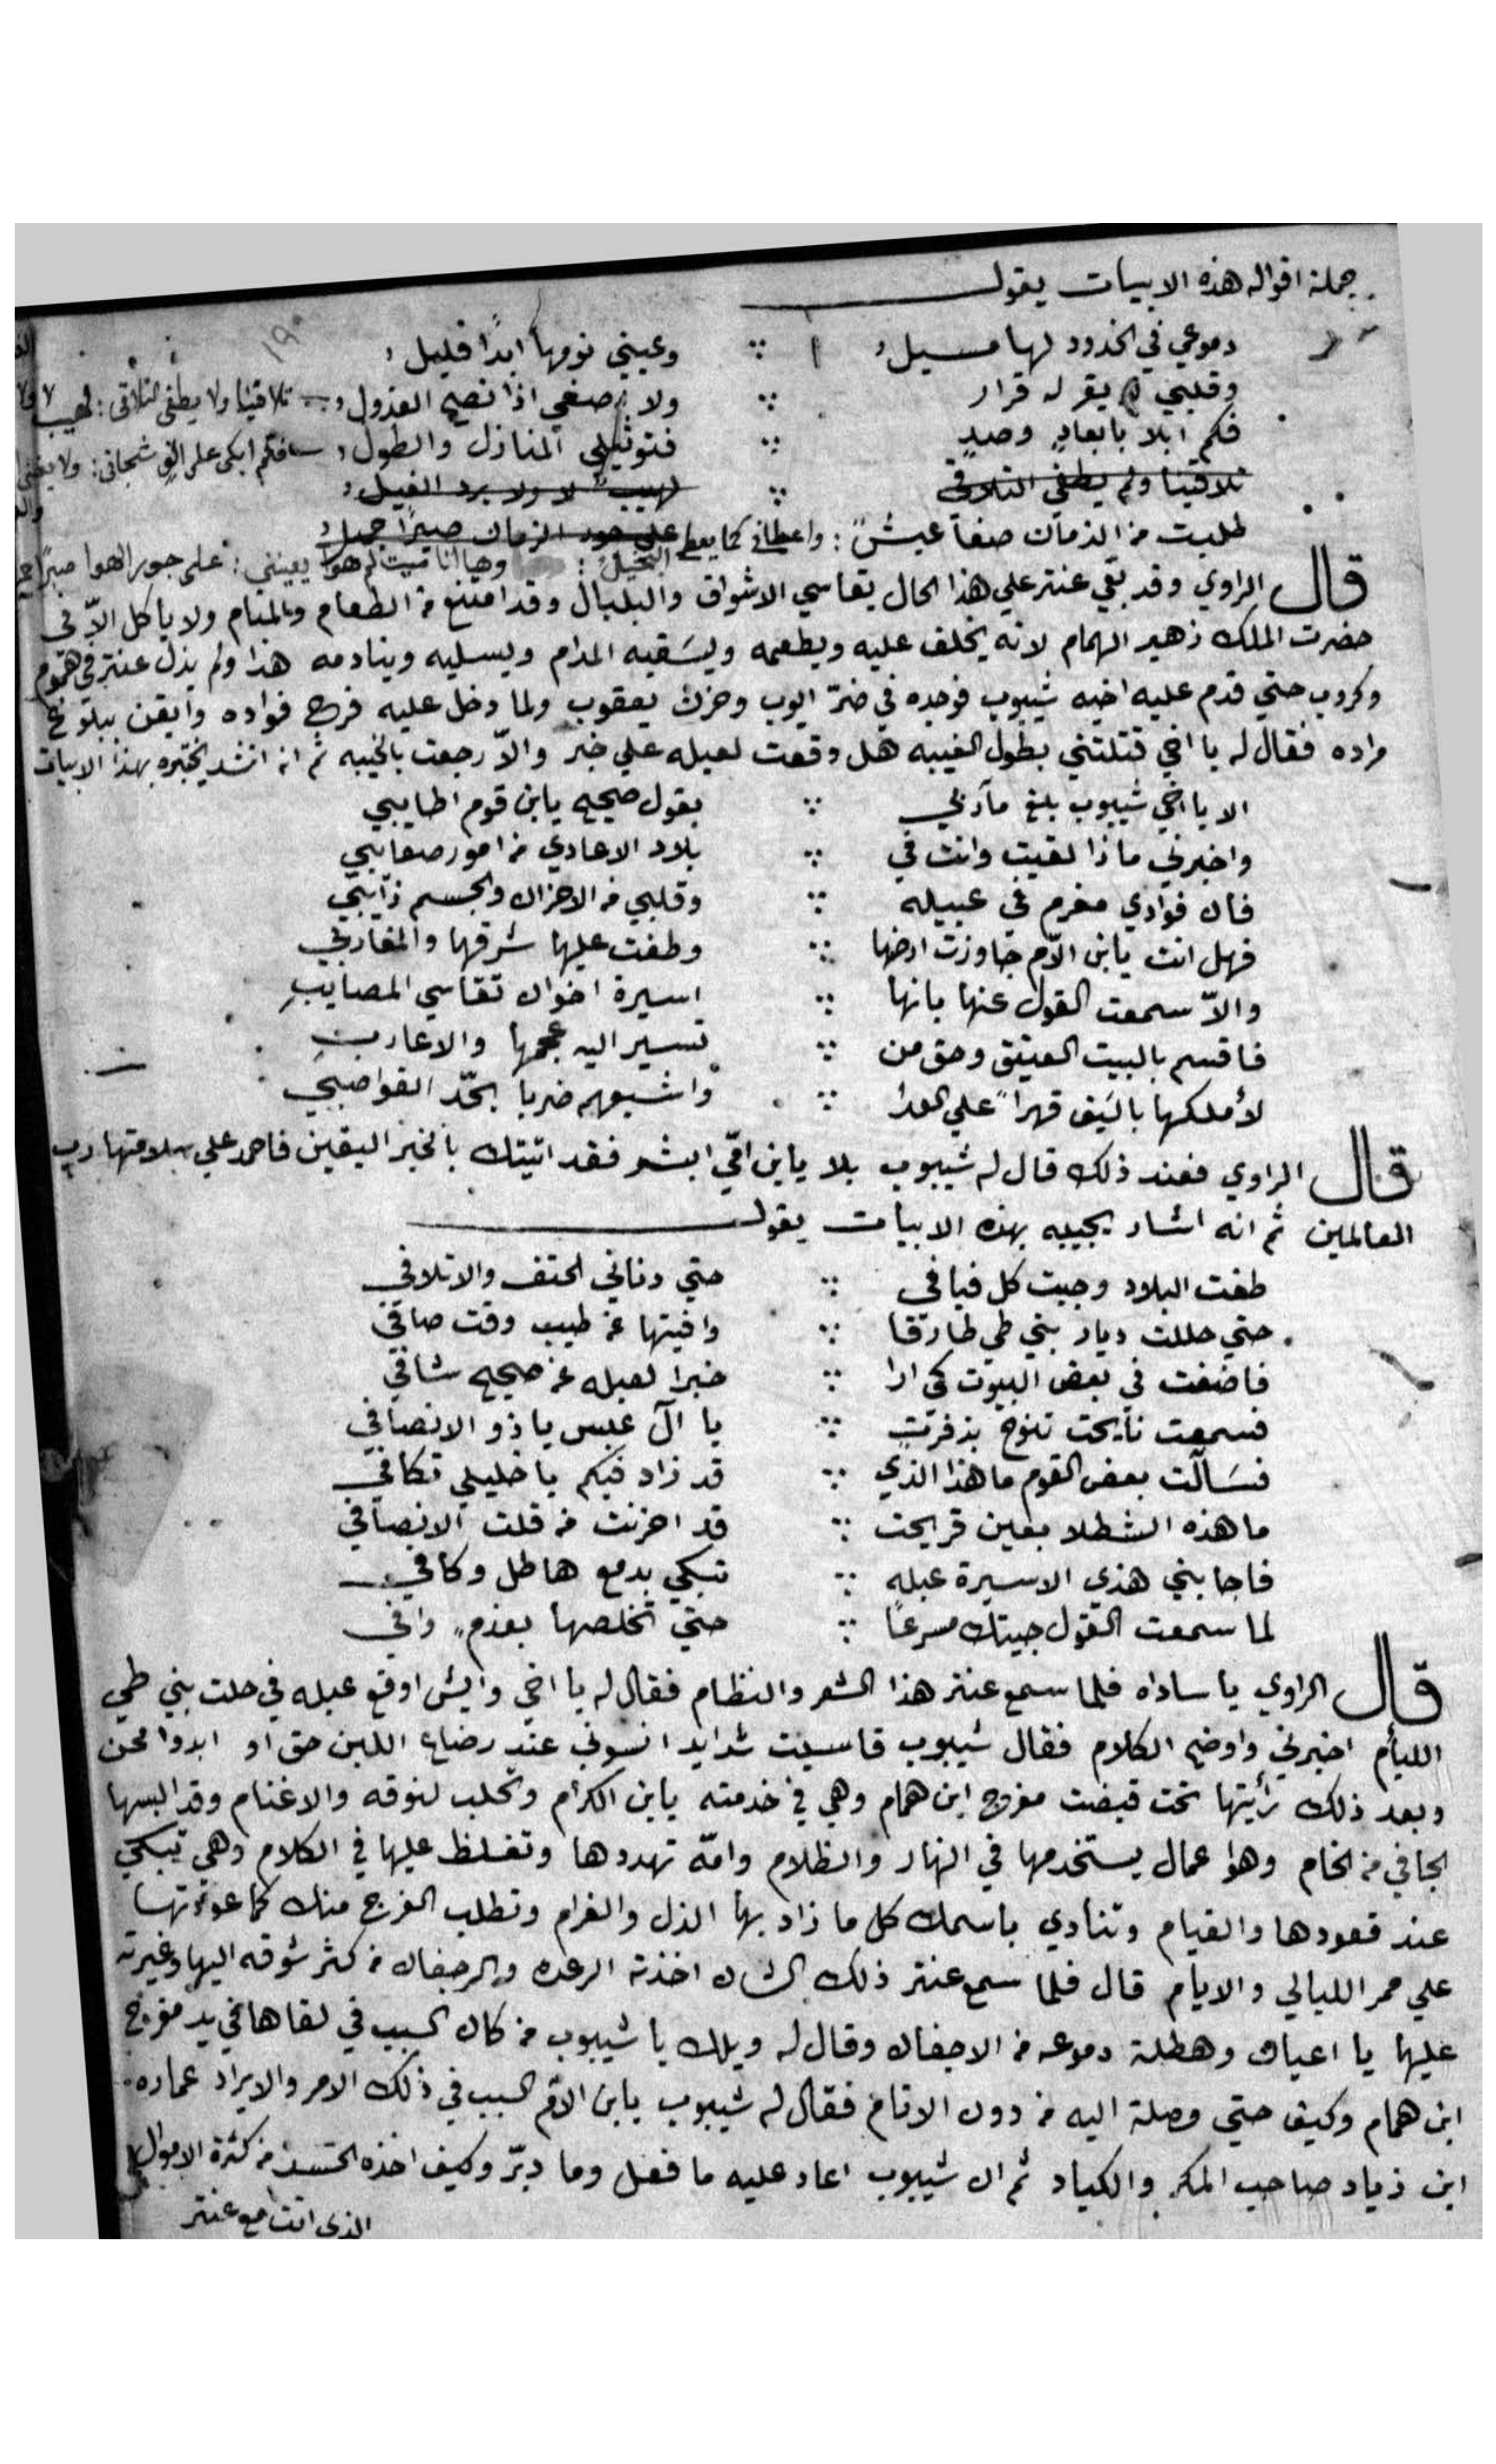 جملة اقواله هذه الابيات يقول
دموعي في الخدود لها مسيل ∴ وعيني نومها ابدًا قليل
وقلبي لا يقر له قرار ∴ ولا يصغي اذا نصح العذول تلاقينا ولا يطفى التلاقى : لهيب لا ولا
فكم ابلا بابعادٍ وصدٍ ∴ فتوثيلي المنازل والطول فكم ابكى على الفٍ شجانى : ولا يغنى
تلاقينا ولم يطفي التلاقي ∴ لهيب لا ولا برد الغيل
طلبت من الزمان صفا عيش : واعطاني كما يعطي البخيل على جور الزمان صبرًا جميل
وها انا ميت لم هوا يعيننى : على جور الهوا صبرًا
قال الراوي وقد بقي عنتر علي هذا الحال يقاسي الاشواق والبلبال وقد امتنع من الطعام والمنام ولا ياكل الاّ في
حضرت الملك زهير الهمام لانه يحلف عليه ويطعمه ويسَقيه المدام ويسليه وينادمه هذا ولم يزل عنتر في هموم
وكروب حتي قدم عليه اخيه شيبوب فوجده في ضرّ ايوب وحزن يعقوب ولما دخل عليه فرح فواده وايقن ببلوغ
مراده فقال له يا اخي قتلتني بطول الغيبه هل وقعت لعبله علي خبر والاّ رجعت بالخيبه ثم انه انشد يختبره بهذا الابيات
الا يا اخي شيبوب بلغ مآربي ∴ بقول صحيح يابن قوم اطايبي
واخبرني ماذا لقيت وانت في ∴ بلاد الاعادي من امور صعايبي
فان فوادي مغرم في عبيله ∴ وقلبي من الاحزان والجسم ذآيبي
فهل انت يابن الاّم جاوزت ارضها ∴ وطفت عليها شرقها والمغاربي
والاّ سمعت القول عنها بانها ∴ اسيرة اخوان تقاسي المصايبِ
فاقسم بالبيت العتيق وحق من ∴ تسير اليه عجمها والاعاربِ
لأملكها بالسَيف قهراً علي العدا ∴ واشبعهم ضربا بحدّ القواضبي
قال الراوي فعند ذلك قال له شيبوب بلا يابن امّي ابشر فقد اتيتك بالخبر اليقين فاحمد علي سلامتها رب
العالمين ثم انه اشار يجيبه بهذه الابيات يقول
طفت البلاد وجبت كل فيافي ∴ حتي دناني الحتف والاتلافي
حتي حللت ديار بني طي طارقا ∴ وافيتها عن طيب وقت صافي
فاضفت في بعض البيوت كي ارا ∴ خبرا لعبله عن صحيح شافي
فسمعت نايحت تنوح بزفرتٍ ∴ يا آل عبس يا ذو الانصافي
فسَالت بعض القوم ما هذا الذي ∴ قد زاد فيكم يا خليلي تكافي
ما هذه الشطلا بعين قريحت ∴ قد احزنت من قلت الانصافي
فاجابني هذي الاسيرة عبله ∴ تبكي بدمع هاطل وكافي
لما سمعت القول جيتك مسرعًا ∴ حتي تخلصها بعزم وافي
قال الراوي يا ساداه فلما سمع عنتر هذا الشعر والنظام فقال له يا اخي وايش اوقع عبله في حلت بني طي
الليأم اخبرني واوضح الكلام فقال شيبوب قاسيت شدايد انسوني عند رضاع اللبن حق او ابدوا محن
وبعد ذلك رأيتها تحت قبضت مفرج ابن همام وهي في خدمته يابن الكرام وتحلب لنوقه والاغنام وقد البسها
الجافي من الخام وهوا عمال يستخدمها في النهار والظلام وامّه تهددها وتغلظ عليها في الكلام وهي تبكي
عند قعودها والقيام وتنادي باسمك كل ما زاد بها الذل والغرام وتطلب الفرج منك كما عودتها
علي ممر الليالي والايام قال فلما سمع عنتر ذلك الشان اخذته الرعده والرجفان من كثر شوقه اليها وغيرته
عليها يا اعيان وهطلة دموعه من الاجفان وقال له ويلك يا شيبوب من كان السبب في لقاها في يد مفرج
ابن همام وكيف حتي وصلة اليه من دون الانام فقال له شيبوب يابن الاّم السبب في ذلك الامر والايراد عماره
ابن زياد صاحب المكر والكياد ثم ان شيبوب اعاد عليه ما فعل وما دبرّ وكيف اخذه الحسد من كثرة الاموال
الذي اتت مع عنتر